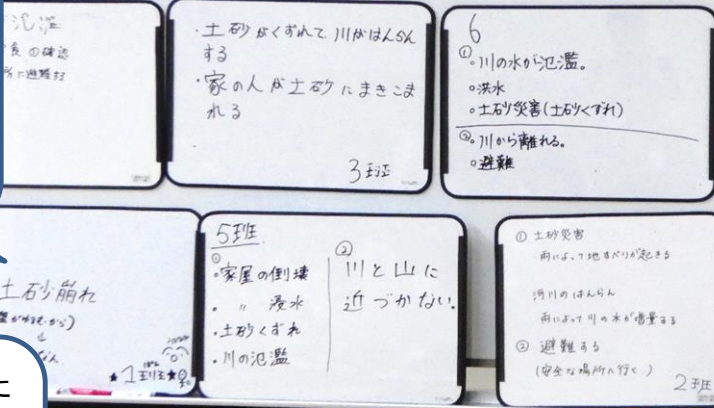 氾濫
食の確認
所に避難する
・土砂がくずれて川がはんらん
する
・家の人が土砂にまきこま
れる
3班
6
①。川の水が氾濫。
。洪水
。土砂災害(土砂くずれ)
②。川から離れる。
。避難
土砂崩れ
★1班★
5班
①
・家屋の倒壊
・〃 浸水
・土砂くずれ
・川の氾濫
②
川と山に
近づかない。
① 土砂災害
雨によって地すべりが起きる
河川のはんらん
雨によって川の水が増量する
② 避難する
(安全な場所へ行く)
2班
に